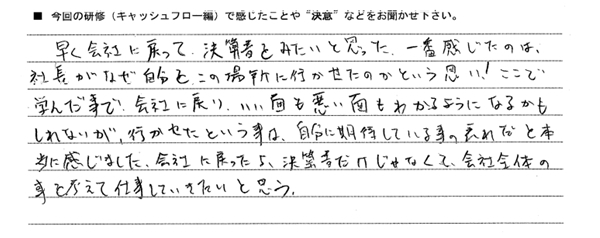 ■ 今回の研修（キャッシュフロー編）で感じたことや“決意”などをお聞かせ下さい。
早く会社に戻って、決算書をみたいと思った。一番感じたのは、
社長がなぜ自分を、この場所に行かせたのかという思い！ここで
学んだ事で、会社に戻り、いい面も悪い面もわかるようになるかも
しれないが、行かせたという事は、自分に期待している事の表れだと本
当に感じました。会社に戻ったら、決算書だけじゃなくて、会社全体の
事を考えて仕事していきたいと思う。